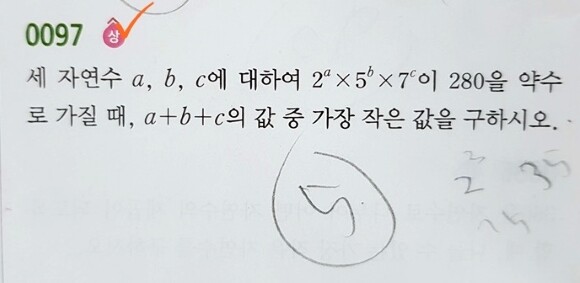 0097 상
세 자연수 a, b, c에 대하여 2ᵃ×5ᵇ×7ᶜ이 280을 약수
로 가질 때, a+b+c의 값 중 가장 작은 값을 구하시오.
5